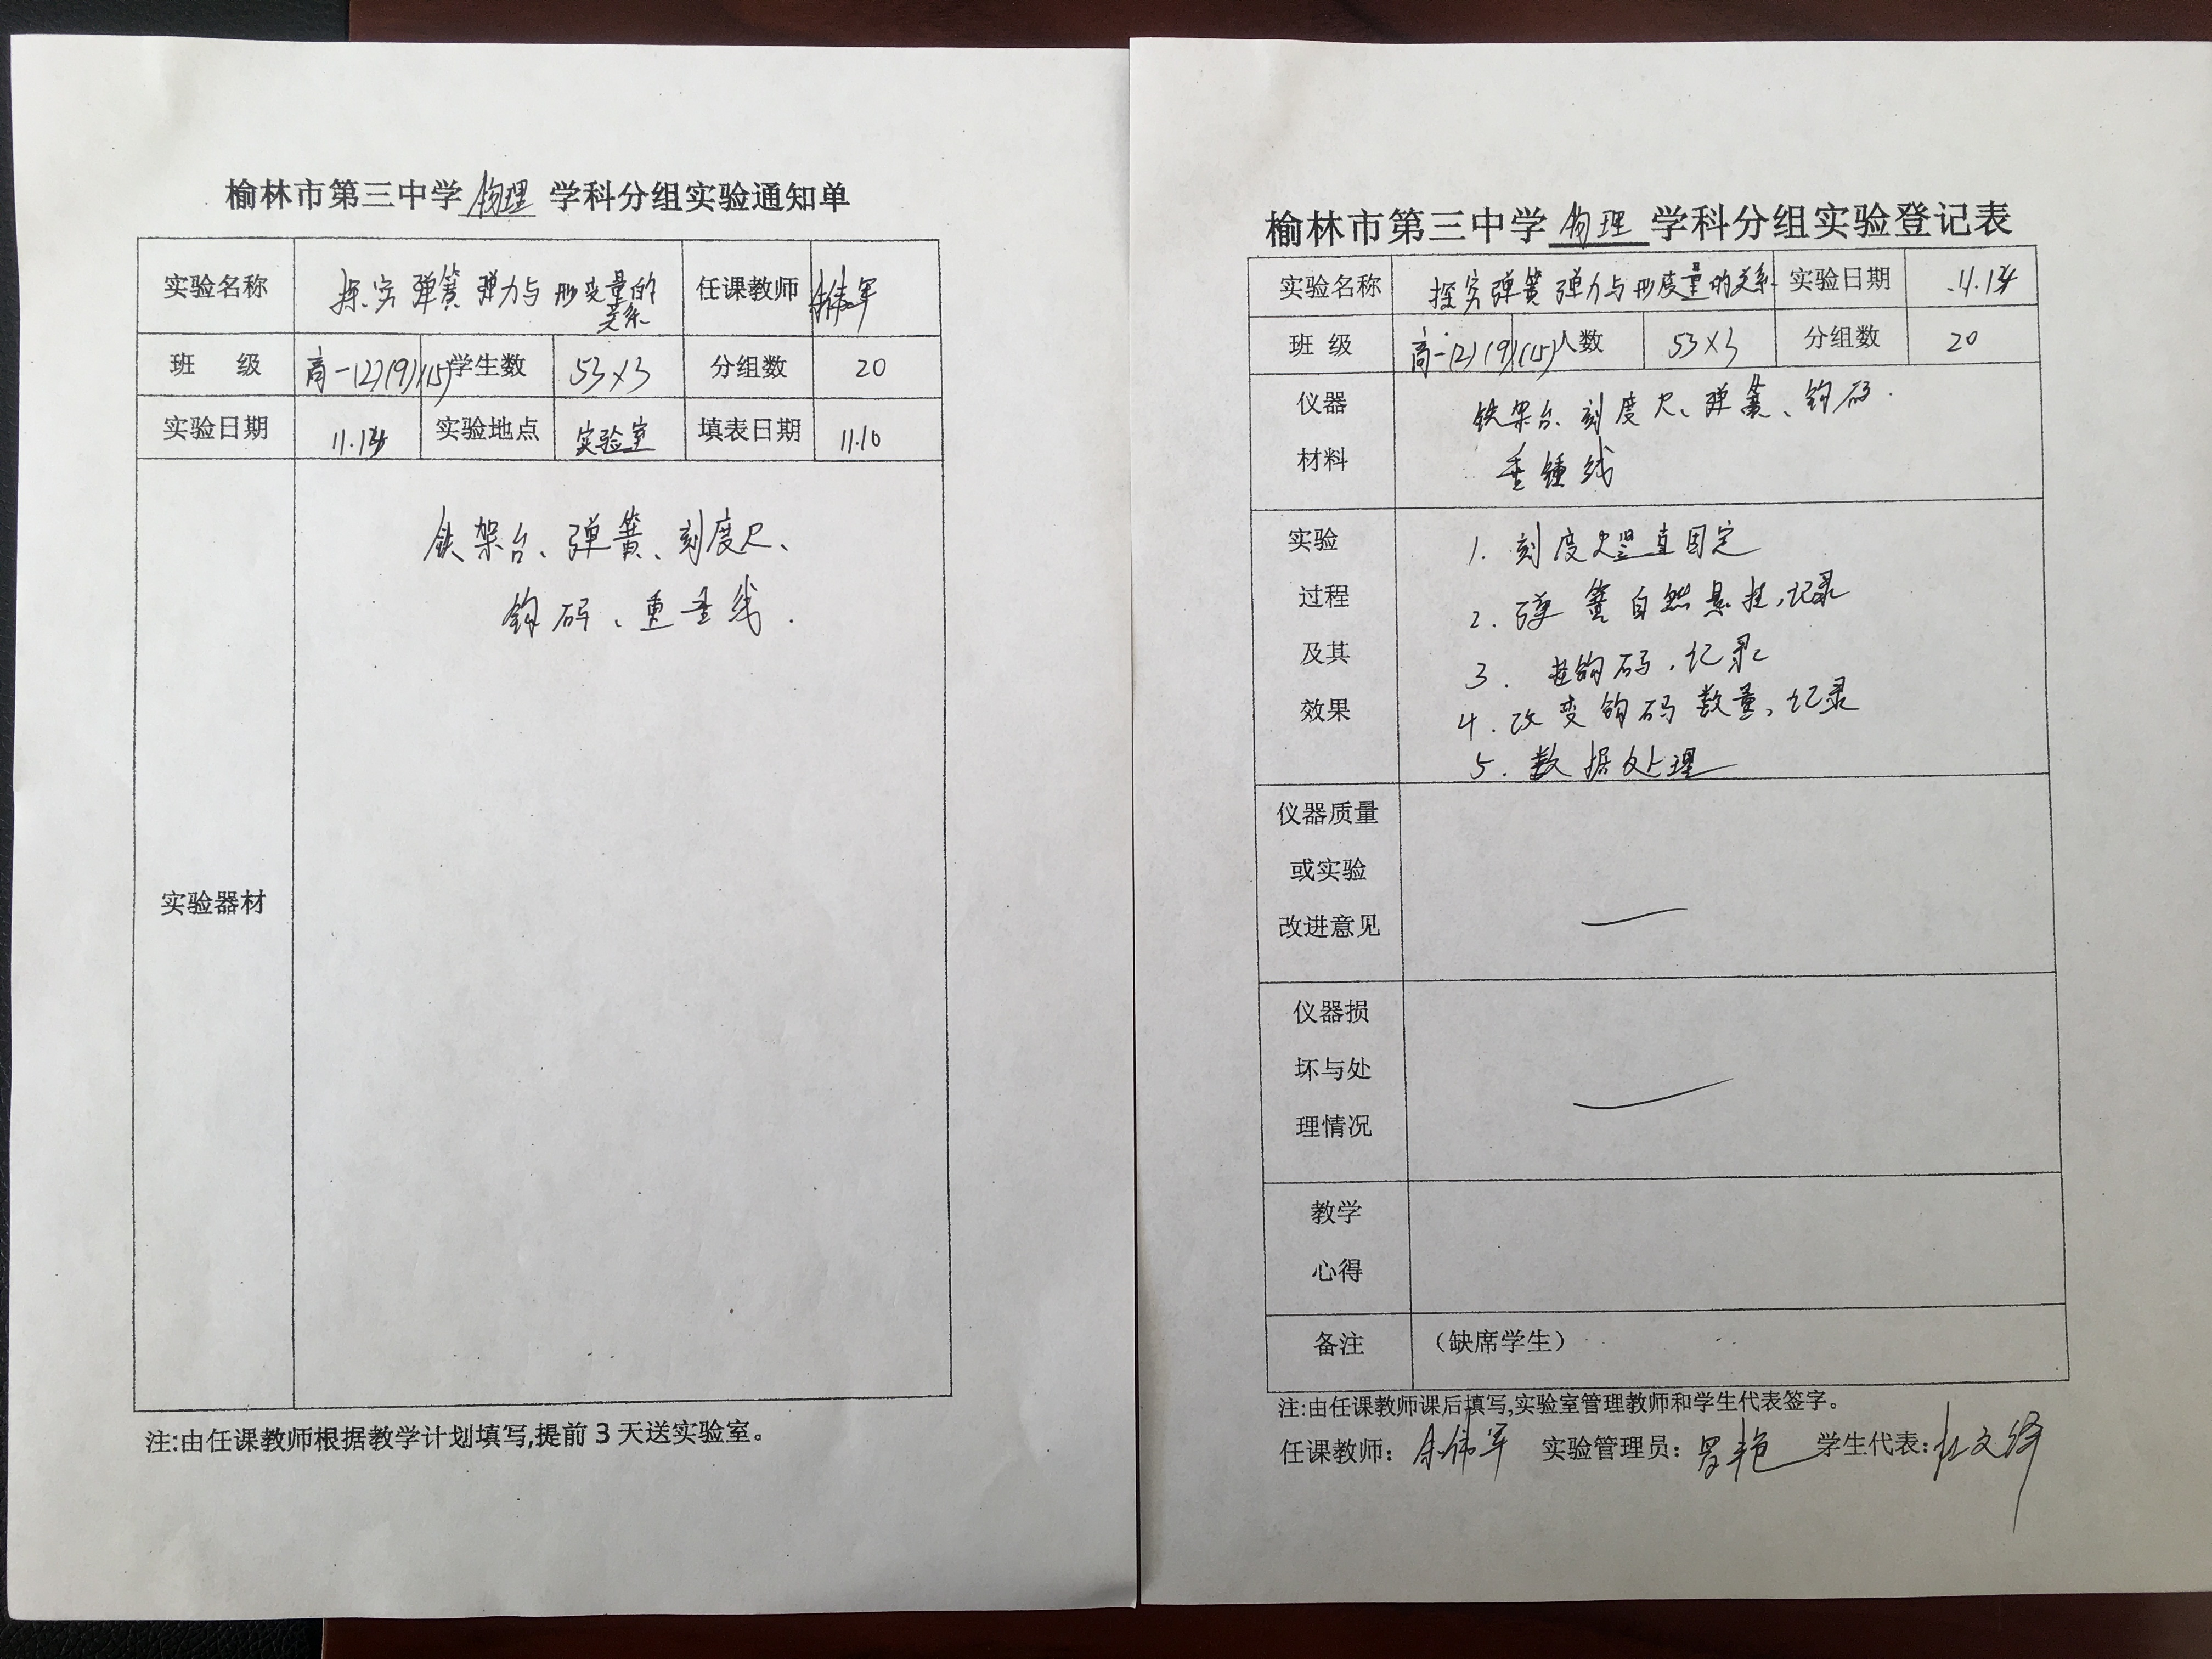 榆林市第三中学 物理 学科分组实验通知单
实验名称 探究弹簧弹力与形变量的关系 任课教师
班 级 高一(2)(9)(15) 学生数 53×3 分组数 20
实验日期 11.14 实验地点 实验室 填表日期 11.10
实验器材
铁架台、弹簧、刻度尺、
钩码、重垂线.
注:由任课教师根据教学计划填写,提前3天送实验室。
榆林市第三中学 物理 学科分组实验登记表
实验名称 探究弹簧弹力与形变量的关系 实验日期 11.14
班 级 高一(2)(9)(15) 人数 53×3 分组数 20
仪器
材料
铁架台、刻度尺、弹簧、钩码.
重锤线
实验
过程
及其
效果
1. 刻度尺竖直固定
2. 弹簧自然悬挂,记录
3. 挂钩码,记录
4. 改变钩码数量,记录
5. 数据处理
仪器质量
或实验
改进意见
仪器损
坏与处
理情况
教学
心得
备注 (缺席学生)
注:由任课教师课后填写,实验室管理教师和学生代表签字。
任课教师: 实验管理员: 罗艳 学生代表: